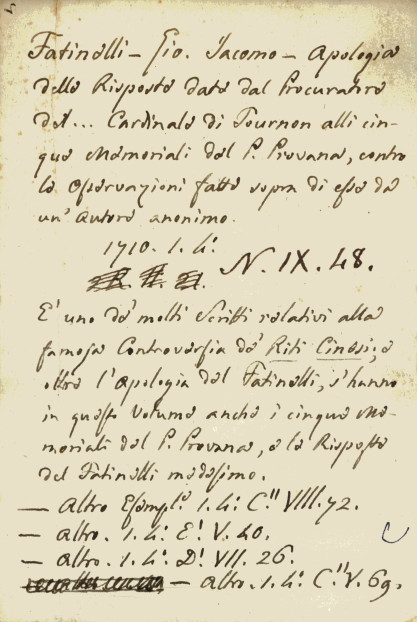 Fatinelli – Gio. Jacomo – Apologia
delle Risposte date dal Procuratore
del... Cardinale di Tournon alli cin-
que Memoriali del P. Provana, contro
le Osservazioni fatte sopra di esse da
un' Autore anonimo.
1710. 1. 4.º
N. IX. 48.
E' uno de' molti scritti relativi alla
famosa Controversia de' Riti Cinesi; e
oltre l'Apologia del Fatinelli, s'hanno
in questo Volume anche i cinque Me-
moriali del P. Provana, e le Risposte
del Fatinelli medesimo.
— Altro Esempl.e 1. 4.º C.II VIII. 72.
— altro. 1. 4.º E.I V. 40.
— altro. 1. 4.º D.I VII. 26.
— altro. 1. 4.º C.II V. 69.